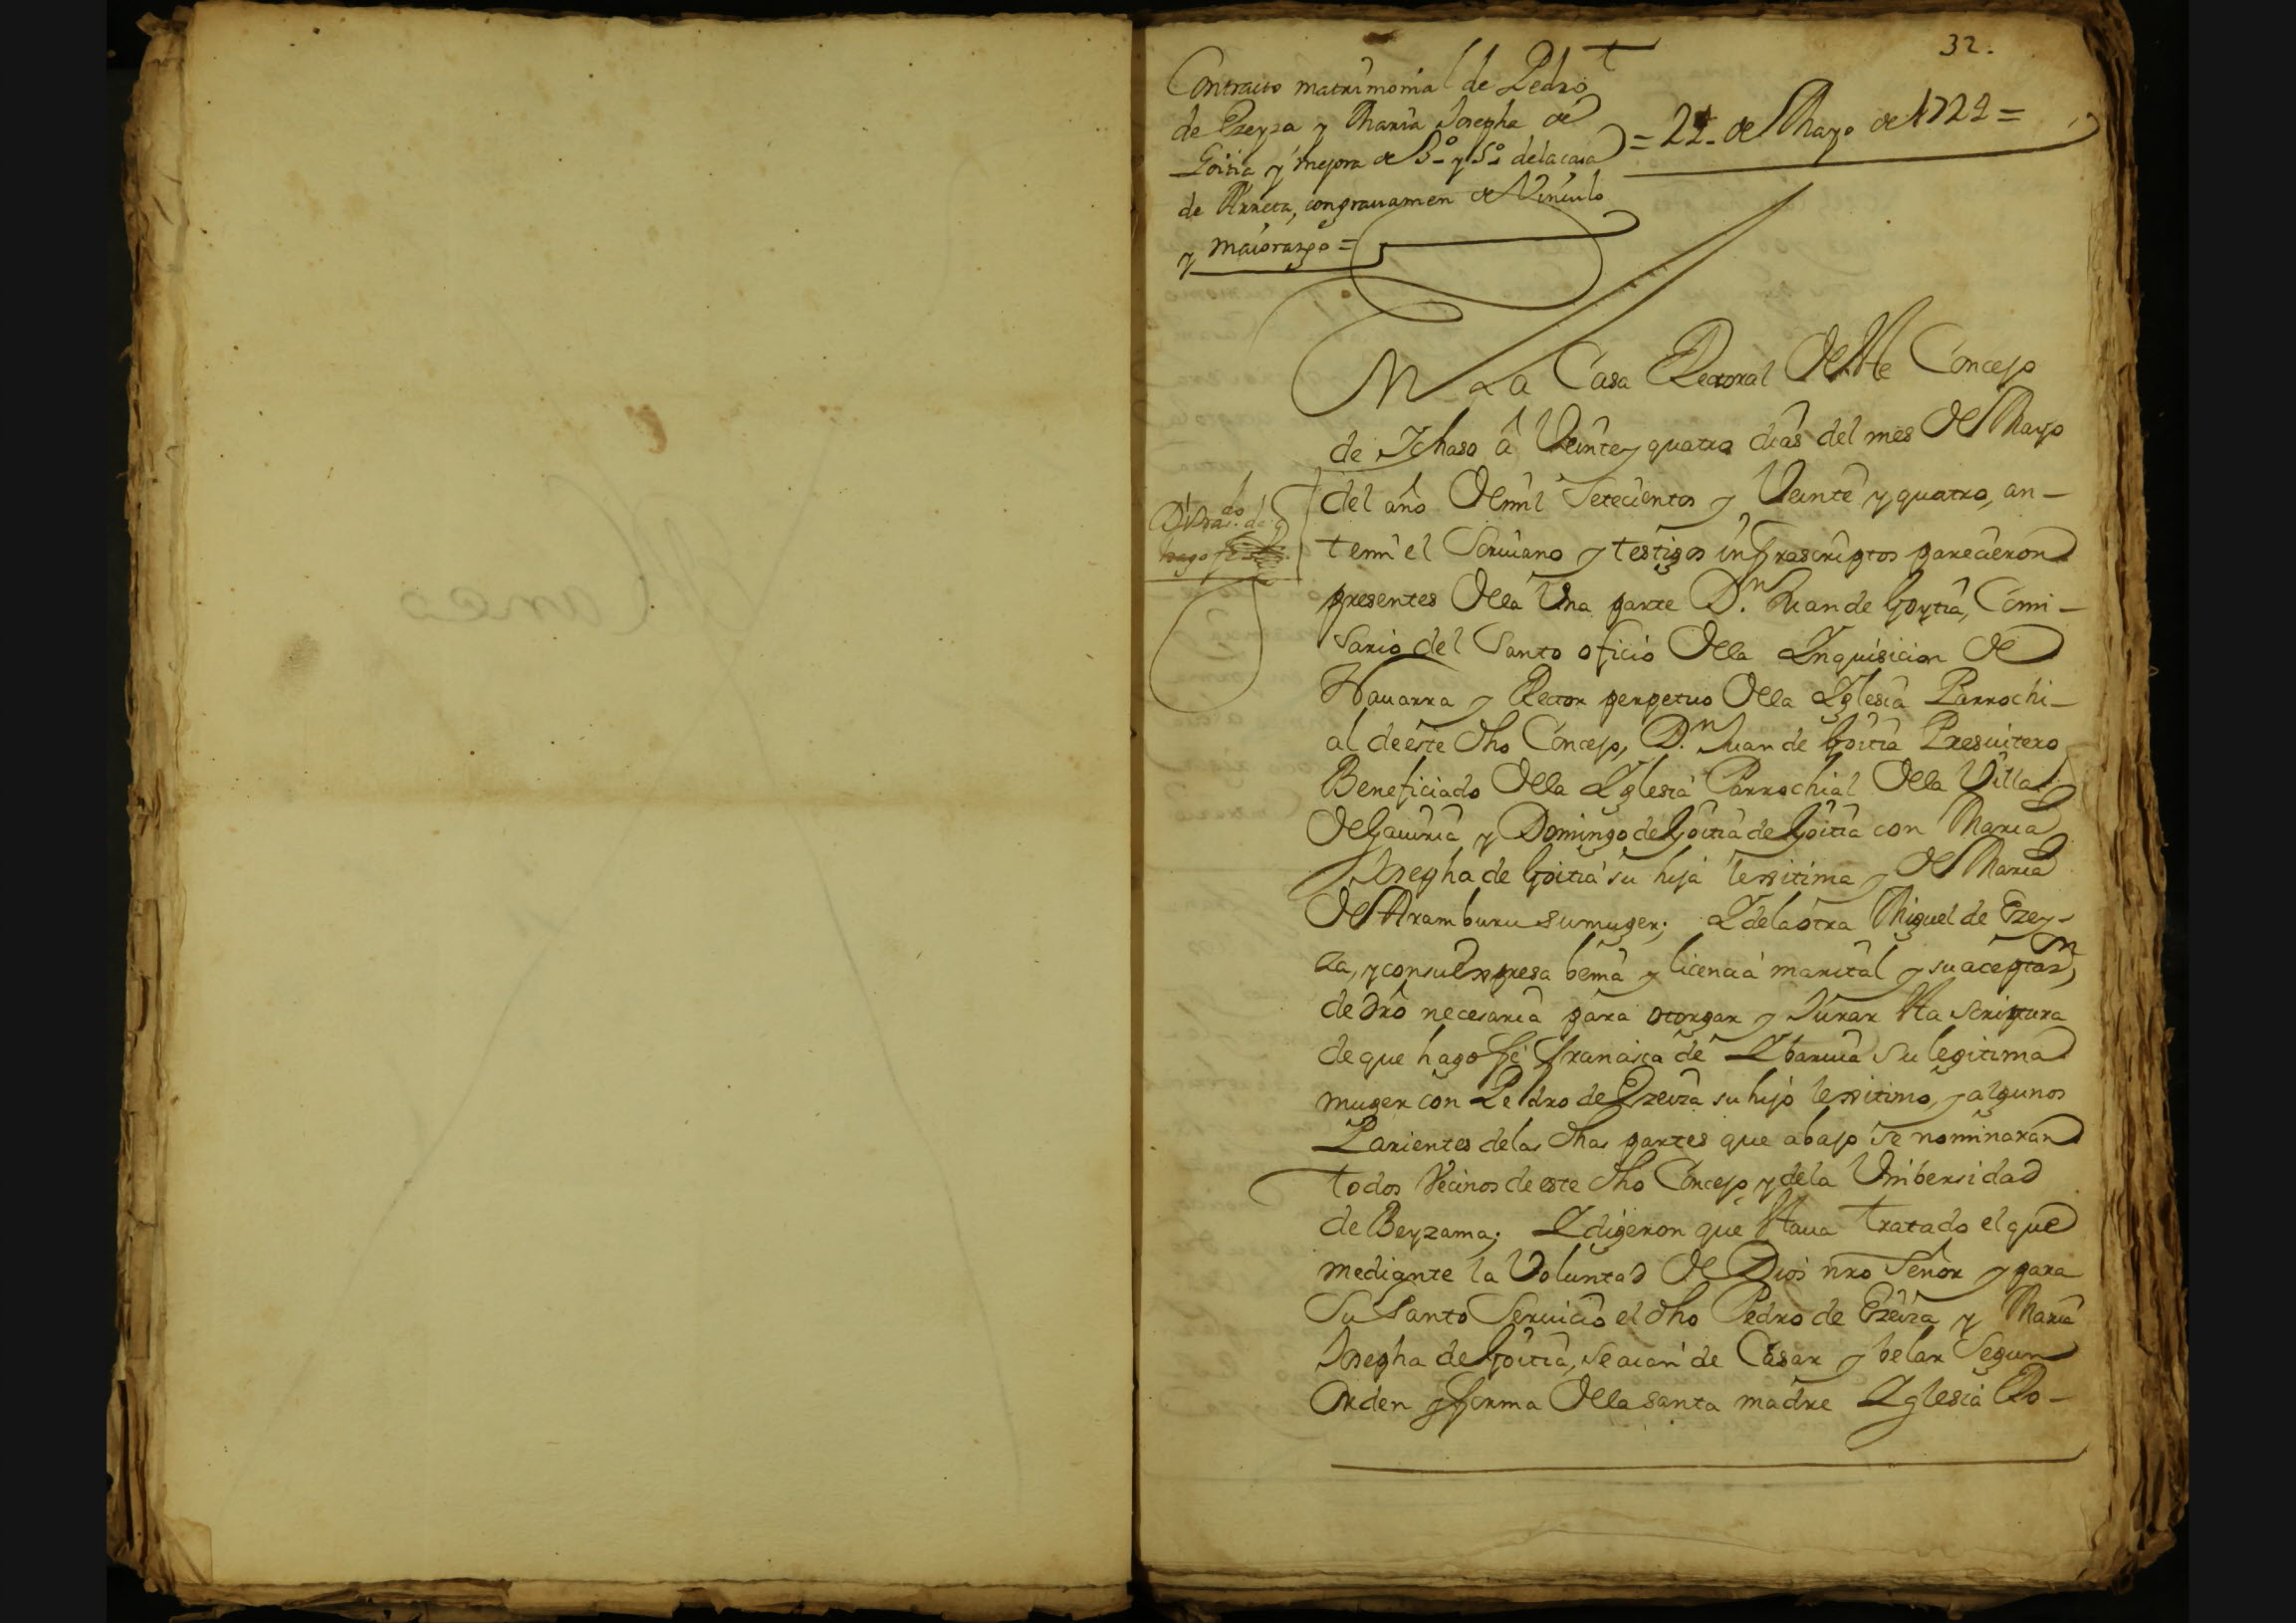 32.
Contracto matrimonial de Pedro
de Ezeyza y Maria Josepha de
Goitia y mejora de 3º y 5º de la casa
de Arreta, con gravamen de Vinculo
y maiorazgo =
= 24 de Mayo de 1724 =
En La Casa Rectoral de este Concejo
de Ichaso â Veinte y quatro dias del mes de Mayo
del año de mil Setecientos y Veinte y quatro, an-
temi el Scriuano y testigos infrascriptos parecieron
presentes de la Una parte D.n Juan de Goytia, Comi-
sario del Santo oficio de la Inquisicion de
Nauarra y Rector perpetuo de la Iglesia Parrochi-
al de este dho Concejo, D.n Juan de Goitia Presuitero
Beneficiado de la Iglesia Parrochial de la Villa
de Gauiria y Domingo de Goitia de Goitia con Maria
Josepha de Goitia su hija lexitima y de Maria
de Aramburu su muger; Y de la otra Miguel de Ezey-
za, y con su expresa benia y licencia marital y su aceptaz.n,
de dro necesaria para otorgar y Jurar esta scriptura
de que hago fe Francisca de Ybaruia Su legitima
muger con Pedro de Ezeiza su hijo lexitimo, y algunos
Parientes de las dhas partes que abajo se nominaran
todos Vecinos de este dho Concejo y de la Unibersidad
de Beyzama; Y digeron que estaua tratado el que
mediante la Voluntad de Dios nro Señor y para
Su Santo Seruicio el dho Pedro de Ezeiza y Maria
Josepha de Goitia, se aian de Casar y belar Segun
Orden y forma de la santa madre Iglesia Ro-
hago fe